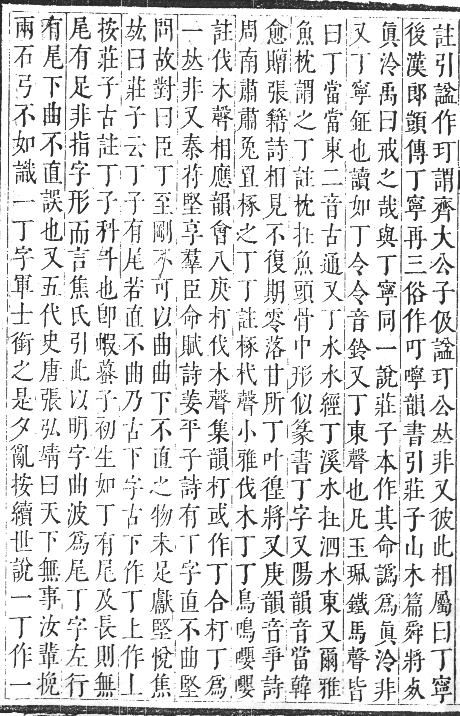 註引諡作玎謂齊大公子伋諡玎公𠀤非又彼此相屬曰丁寧
後漢郎顗傳丁寧再三俗作叮嚀韻書引莊子山木篇舜將𣦸
眞泠禹曰戒之哉與丁寧同一說莊子本作其命譌爲眞泠非
又丁寧鉦也讀如丁令令音鈴又丁東聲也凡玉珮鐵馬聲皆
曰丁當當東二音古通又丁水水經丁溪水在泗水東又爾雅
魚枕謂之丁註枕在魚頭骨中形似篆書丁字又陽韻音當韓
愈贈張籍詩相見不復期零落甘所丁叶徨將又庚韻音爭詩
周南肅肅兔罝椓之丁丁註椓杙聲小雅伐木丁丁鳥鳴嚶嚶
註伐木聲相應韻會八庚朾伐木聲集韻朾或作丁合朾丁爲
一𠀤非又秦苻堅享羣臣命賦詩姜平子詩有丁字直不曲堅
問故對曰臣丁至剛不可以曲曲下不直之物未足獻堅悅焦
竑曰莊子云丁子有尾若直不曲乃古下字古下作丅上作丄
按莊子古註丁子科斗也卽蝦蟇子初生如丁有尾及長則無
尾有足非指字形而言焦氏引此以明字曲波爲尾丁字左行
有尾下曲不直誤也又五代史唐張弘靖曰天下無事汝輩挽
兩石弓不如識一丁字軍士銜之是夕亂按續世說一丁作一